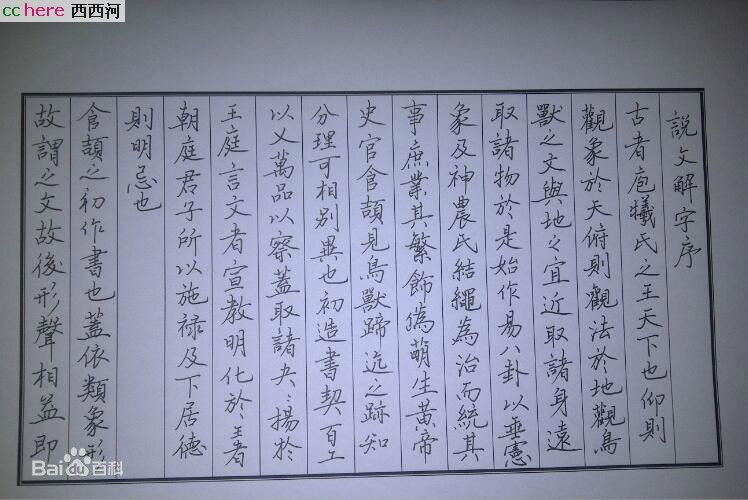 cchere 西西河
說文解字序
古者庖犧氏之王天下也仰則
觀象於天俯則觀法於地觀鳥
獸之文與地之宜近取諸身遠
取諸物於是始作易八卦以垂憲
象及神農氏結繩為治而統其
事庶業其繁飾偽萌生黃帝
史官倉頡見鳥獸蹄迒之跡知
分理可相別異也初造書契百工
以乂萬品以察蓋取諸夬〻揚於
王庭言文者宣教明化於王者
朝庭君子所以施禄及下居德
則明忌也
倉頡之初作書也蓋依類象形
故謂之文故後形聲相益即
Baidu百科